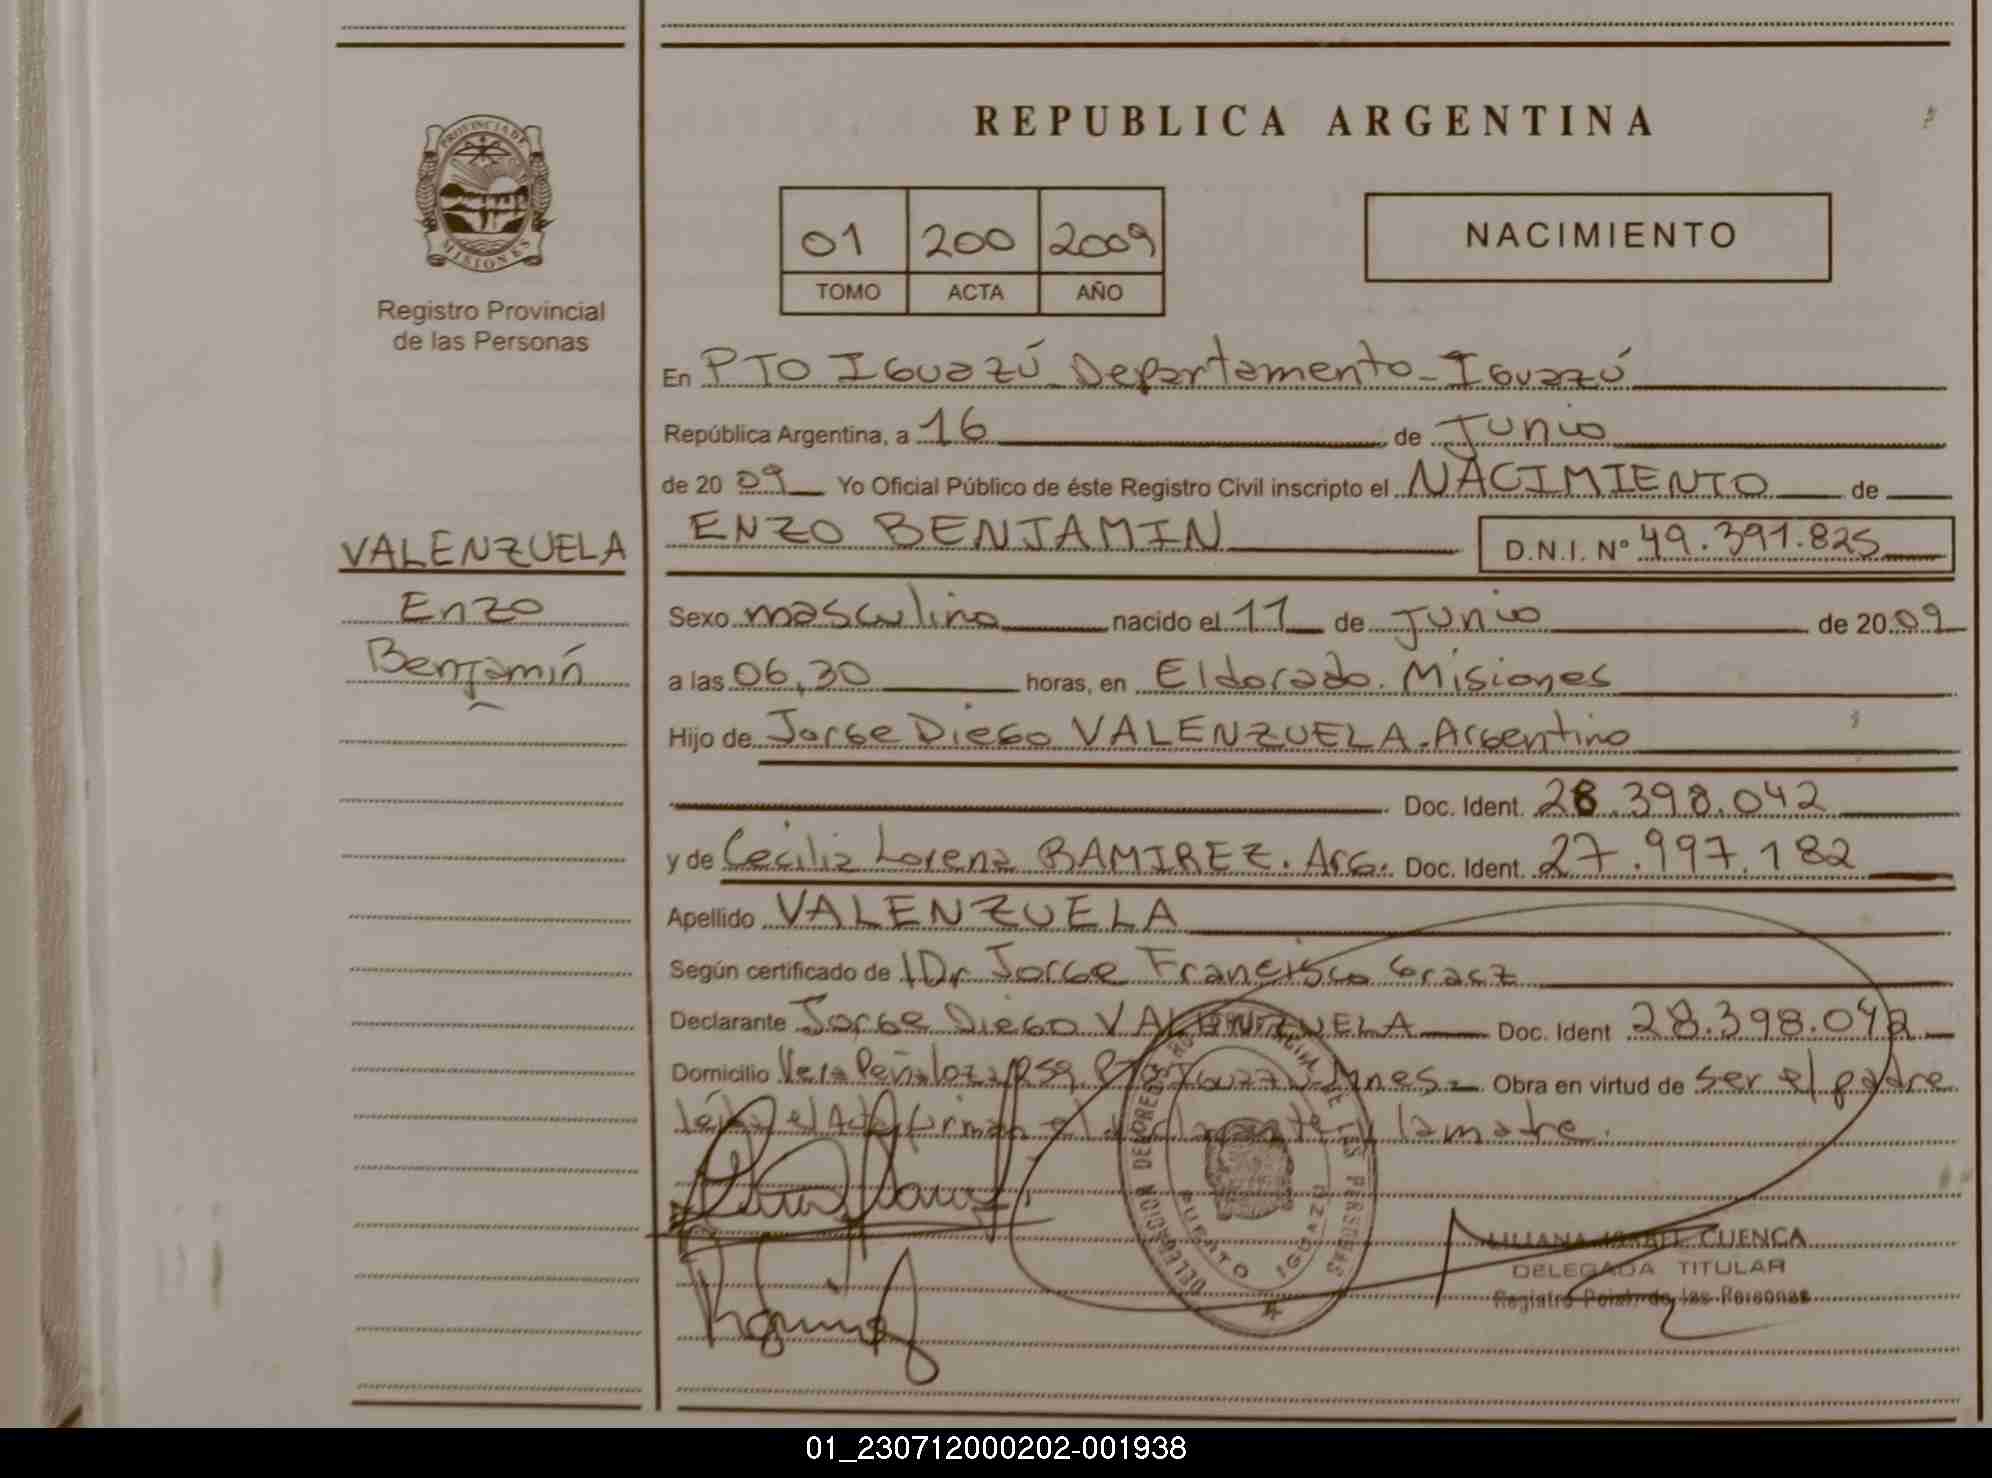 PROVINCIA DE
MISIONES
Registro Provincial
de las Personas
VALENZUELA
Enzo
Benjamín
REPUBLICA ARGENTINA
01 200 2009
TOMO ACTA AÑO
NACIMIENTO
En PTO Iguazú Departamento - Iguazú
República Argentina, a 16 de Junio
de 2009 Yo Oficial Público de éste Registro Civil inscripto el NACIMIENTO de
ENZO BENJAMIN D.N.I. Nº 49.391.825
Sexo masculino nacido el 11 de Junio de 2009
a las 06,30 horas, en Eldorado. Misiones
Hijo de Jorge Diego VALENZUELA. Argentino
Doc. Ident. 28.398.042
y de Cecilia Lorena RAMIREZ. Arg. Doc. Ident. 27.997.182
Apellido VALENZUELA
Según certificado de Dr Jorge Francisco
Declarante Jorge Diego VALENZUELA Doc. Ident 28.398.042
Domicilio Vera Peñaloza Pto Iguazú Mnes. Obra en virtud de ser el padre
leída el Acta firman el declarante y la madre.
DELEGACION DEL REGISTRO PROVINCIAL DE LAS PERSONAS
PUERTO IGUAZU
LILIANA ISABEL CUENCA
DELEGADA TITULAR
Registro Pcial. de las Personas
Ramirez
01_230712000202-001938